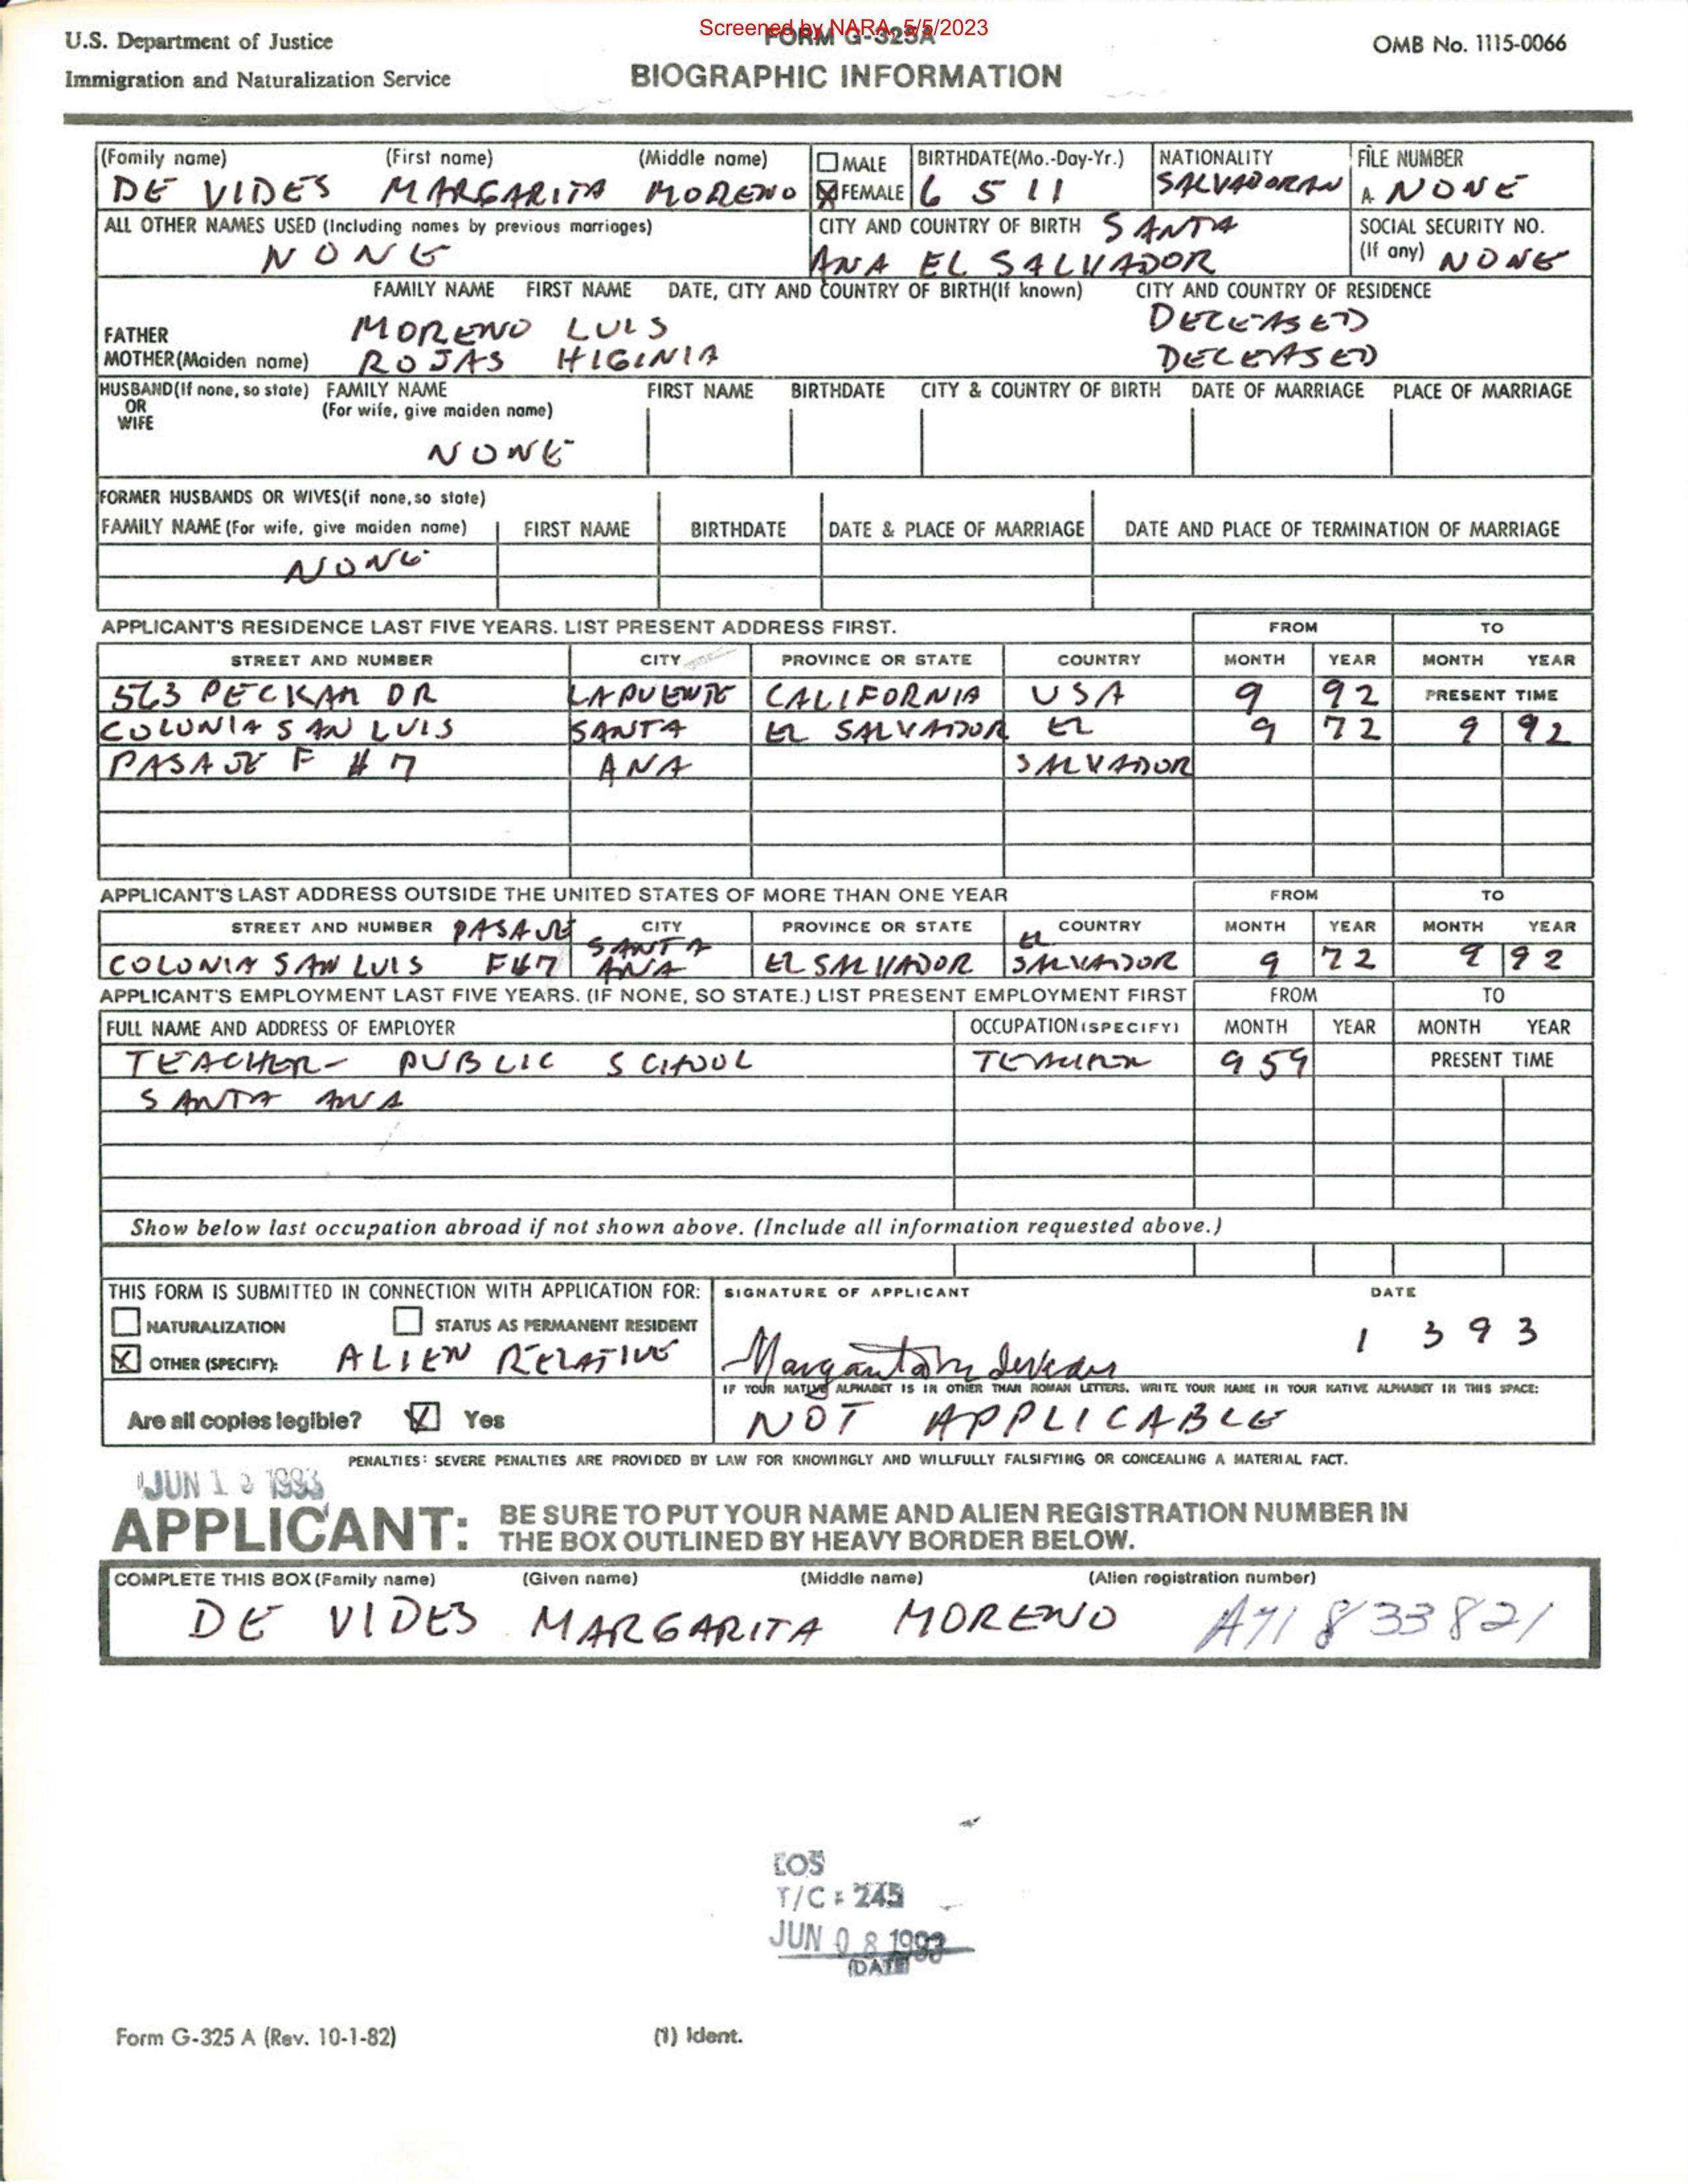 Screened by NARA, 5/5/2023
U.S. Department of Justice
Immigration and Naturalization Service
FORM G-325A
BIOGRAPHIC INFORMATION
OMB No. 1115-0066
(Family name) (First name) (Middle name) MALE BIRTHDATE(Mo.-Day-Yr.) NATIONALITY FILE NUMBER
DE VIDES MARGARITA MORENO X FEMALE 6 5 11 SALVADORAN A NONE
ALL OTHER NAMES USED (Including names by previous marriages) CITY AND COUNTRY OF BIRTH SANTA SOCIAL SECURITY NO.
NONE ANA EL SALVADOR (If any) NONE
FAMILY NAME FIRST NAME DATE, CITY AND COUNTRY OF BIRTH(If known) CITY AND COUNTRY OF RESIDENCE
FATHER MORENO LUIS DECEASED
MOTHER(Maiden name) ROJAS HIGINIA DECEASED
HUSBAND(If none, so state) FAMILY NAME FIRST NAME BIRTHDATE CITY & COUNTRY OF BIRTH DATE OF MARRIAGE PLACE OF MARRIAGE
OR (For wife, give maiden name)
WIFE
NONE
FORMER HUSBANDS OR WIVES(if none, so state)
FAMILY NAME (For wife, give maiden name) FIRST NAME BIRTHDATE DATE & PLACE OF MARRIAGE DATE AND PLACE OF TERMINATION OF MARRIAGE
NONE
APPLICANT'S RESIDENCE LAST FIVE YEARS. LIST PRESENT ADDRESS FIRST. FROM TO
STREET AND NUMBER CITY PROVINCE OR STATE COUNTRY MONTH YEAR MONTH YEAR
563 PECKAM DR LAPUENTE CALIFORNIA USA 9 92 PRESENT TIME
COLONIA SAN LUIS SANTA EL SALVADOR EL 9 72 9 92
PASAJE F #7 ANA SALVADOR
APPLICANT'S LAST ADDRESS OUTSIDE THE UNITED STATES OF MORE THAN ONE YEAR FROM TO
STREET AND NUMBER PASAJE CITY PROVINCE OR STATE COUNTRY MONTH YEAR MONTH YEAR
SANTA EL
COLONIA SAN LUIS F#7 ANA EL SALVADOR SALVADOR 9 72 9 92
APPLICANT'S EMPLOYMENT LAST FIVE YEARS. (IF NONE, SO STATE.) LIST PRESENT EMPLOYMENT FIRST FROM TO
FULL NAME AND ADDRESS OF EMPLOYER OCCUPATION (SPECIFY) MONTH YEAR MONTH YEAR
TEACHER- PUBLIC SCHOOL TEACHER 9 59 PRESENT TIME
SANTA ANA
Show below last occupation abroad if not shown above. (Include all information requested above.)
THIS FORM IS SUBMITTED IN CONNECTION WITH APPLICATION FOR: SIGNATURE OF APPLICANT DATE
NATURALIZATION STATUS AS PERMANENT RESIDENT 1 3 93
X OTHER (SPECIFY): ALIEN RELATIVE
IF YOUR NATIVE ALPHABET IS IN OTHER THAN ROMAN LETTERS, WRITE YOUR NAME IN YOUR NATIVE ALPHABET IN THIS SPACE:
Are all copies legible? Yes NOT APPLICABLE
PENALTIES: SEVERE PENALTIES ARE PROVIDED BY LAW FOR KNOWINGLY AND WILLFULLY FALSIFYING OR CONCEALING A MATERIAL FACT.
JUN 1993
APPLICANT: BE SURE TO PUT YOUR NAME AND ALIEN REGISTRATION NUMBER IN
THE BOX OUTLINED BY HEAVY BORDER BELOW.
COMPLETE THIS BOX (Family name) (Given name) (Middle name) (Alien registration number)
DE VIDES MARGARITA MORENO A71 833 821
LOS
T/C # 245
JUN 08 1993
(DATE)
Form G-325 A (Rev. 10-1-82) (1) Ident.